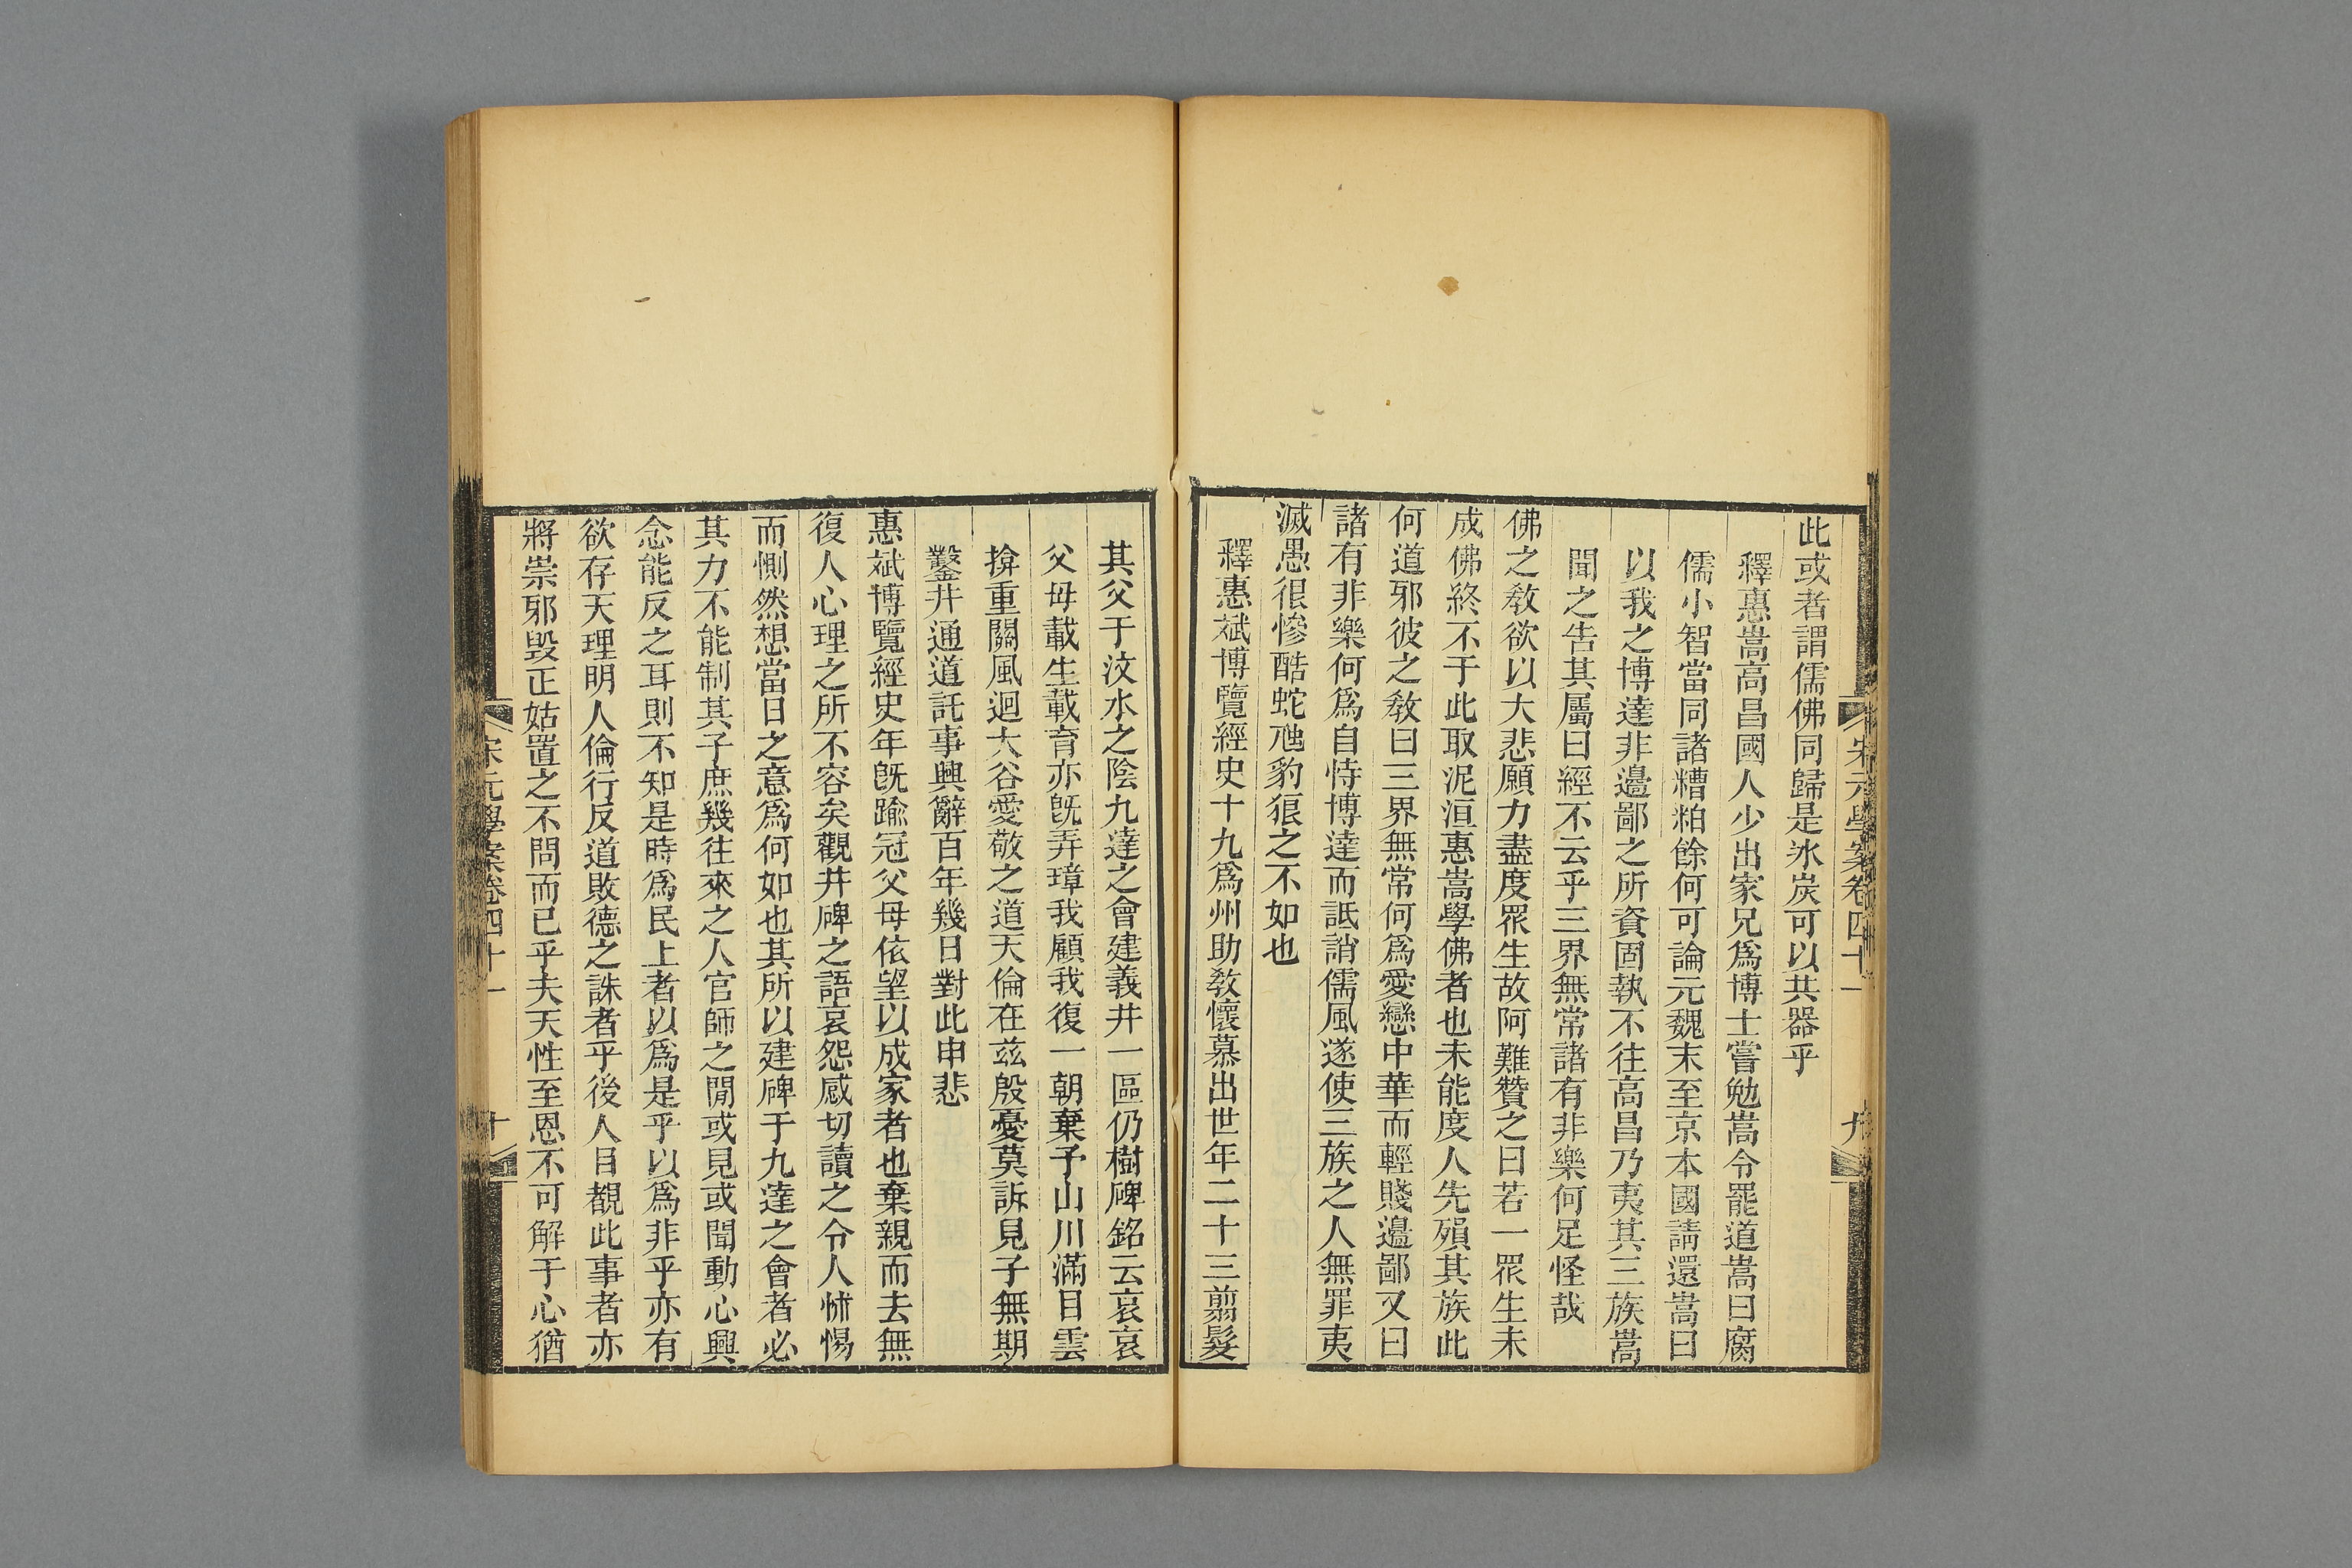 宋元學案卷四十一
九
此或者謂儒佛同歸是冰炭可以共器乎
釋惠嵩高昌國人少出家兄爲博士嘗勉嵩令罷道嵩曰腐
儒小智當同諸糟粕餘何可論元魏末至京本國請還嵩曰
以我之博達非邊鄙之所資固執不往高昌乃夷其三族嵩
聞之告其屬曰經不云乎三界無常諸有非樂何足怪哉
佛之敎欲以大悲願力盡度眾生故阿難贊之曰若一眾生未
成佛終不于此取泥洹惠嵩學佛者也未能度人先殞其族此
何道邪彼之敎曰三界無常何爲愛戀中華而輕賤邊鄙又曰
諸有非樂何爲自恃博達而詆誚儒風遂使三族之人無罪夷
滅愚很慘酷蛇虺豹狼之不如也
釋惠斌博覽經史十九爲州助敎懷慕出世年二十三翦髮
其父于汶水之陰九達之會建義井一區仍樹碑銘云哀哀
父母載生載育亦旣弄璋我顧我復一朝棄予山川滿目雲
掩重關風迴大谷愛敬之道天倫在茲殷憂莫訴見子無期
鑿井通道託事興辭百年幾日對此申悲
惠斌博覽經史年旣踰冠父母依望以成家者也棄親而去無
復人心理之所不容矣觀井碑之語哀怨感切讀之令人怵惕
而惻然想當日之意爲何如也其所以建碑于九達之會者必
其力不能制其子庶幾往來之人官師之閒或見或聞動心興
念能反之耳則不知是時爲民上者以爲是乎以爲非乎亦有
欲存天理明人倫行反道敗德之誅者乎後人目覩此事者亦
將崇邪毀正姑置之不問而已乎夫天性至恩不可解于心猶
宋元學案卷四十一
十